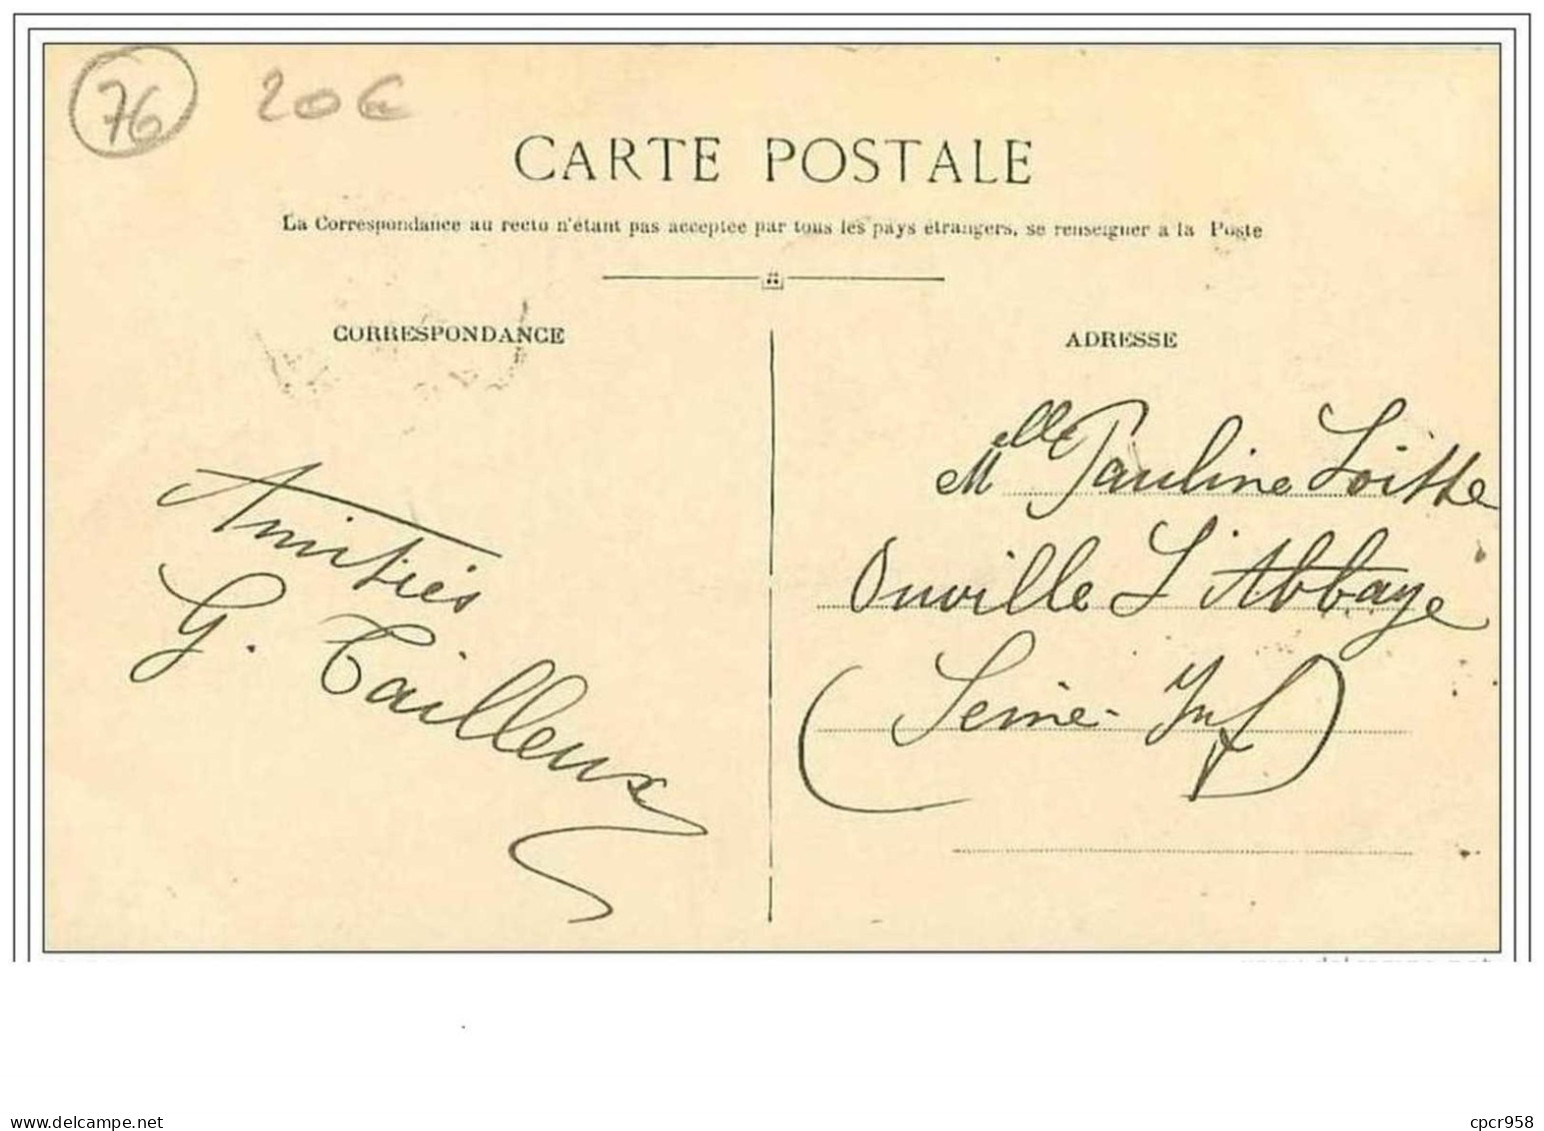 76 20€
CARTE POSTALE
La Correspondance au recto n'étant pas acceptée par tous les pays étrangers, se renseigner à la Poste
CORRESPONDANCE
ADRESSE
Amitiés
G. Tailleux
Mlle Pauline
Ouville L'Abbaye
(Seine-Inf)
delcampe.net
cpcr958